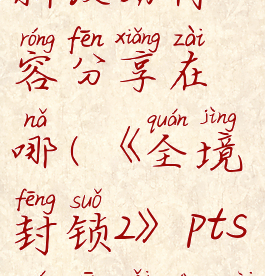 róng fēn xiǎng zài
容分享在
nǎ quán jìng
哪(《全境
fēng suǒ
封锁2》pts